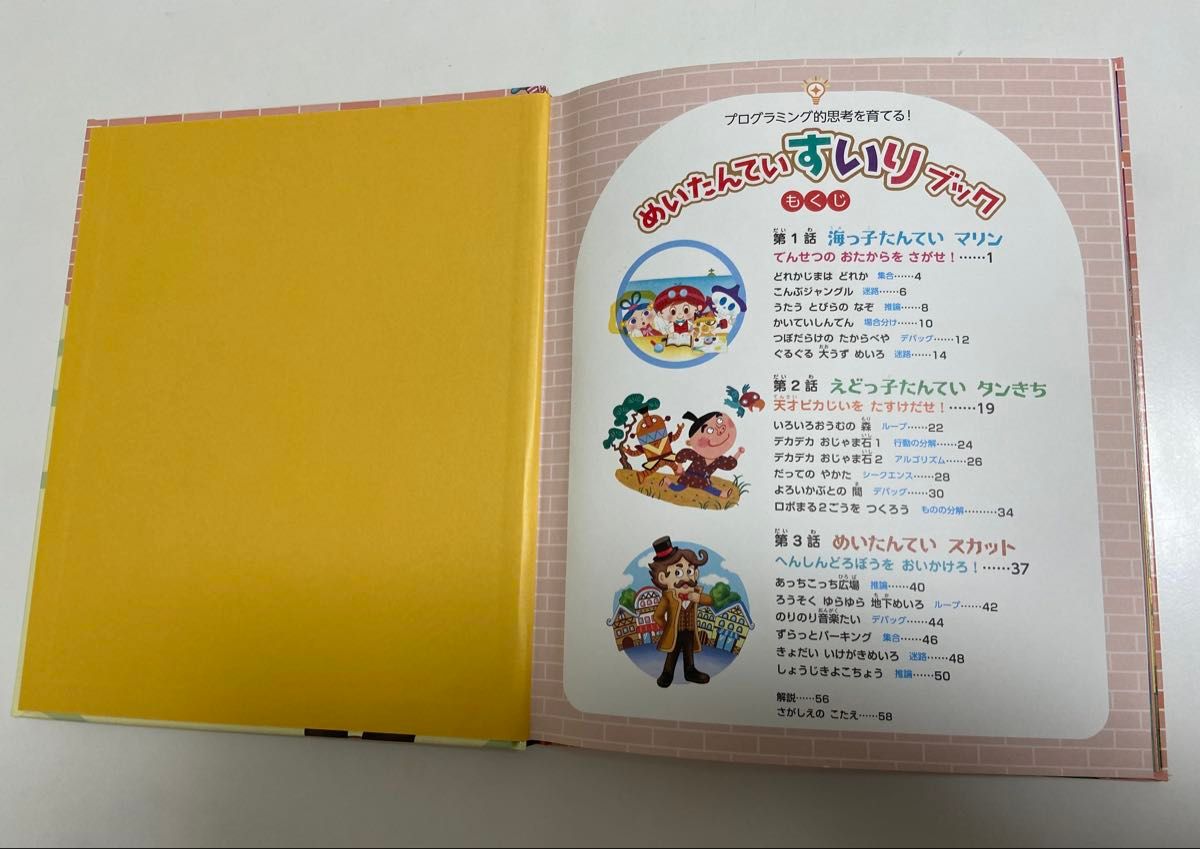 プログラミング的思考を育てる!
めいたんてい すいり ブック
もくじ
第1話 海っ子たんてい マリン
でんせつの おたからを さがせ!……1
どれかじまは どれか 集合……4
こんぶジャングル 迷路……6
うたう とびらの なぞ 推論……8
かいていしんでん 場合分け……10
つぼだらけの たからべや デバッグ……12
ぐるぐる 大うず めいろ 迷路……14
第2話 えどっ子たんてい タンきち
天才ピカじいを たすけだせ!……19
いろいろおうむの 森 ループ……22
デカデカ おじゃま石1 行動の分解……24
デカデカ おじゃま石2 アルゴリズム……26
だっての やかた シークエンス……28
よろいかぶとの 間 デバッグ……30
ロボまる2ごうを つくろう ものの分解………34
第3話 めいたんてい スカット
へんしんどろぼうを おいかけろ!……37
あっちこっち広場 推論……40
ろうそく ゆらゆら 地下めいろ ループ……42
のりのり音楽たい デバッグ……44
ずらっとパーキング 集合……46
きょだい いけがきめいろ 迷路……48
しょうじきよこちょう 推論……50
解説……56
さがしえの こたえ……58